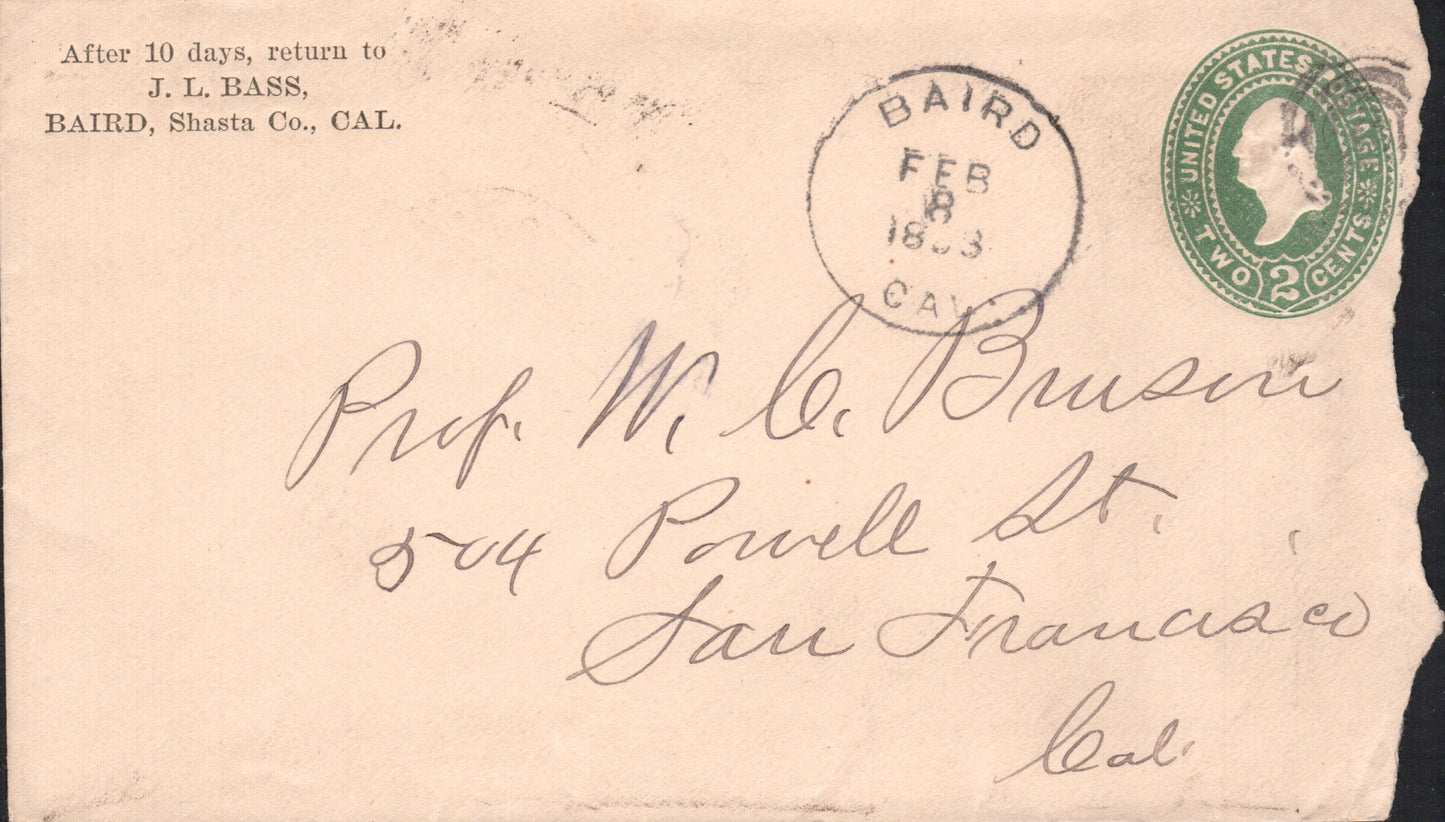 After 10 days, return to
J. L. BASS,
BAIRD, Shasta Co., CAL.
BAIRD
FEB
CAL.
UNITED STATES POSTAGE
TWO 2 CENTS
Prof. W. C. Bruson
504 Powell St.
San Francisco
Cal.